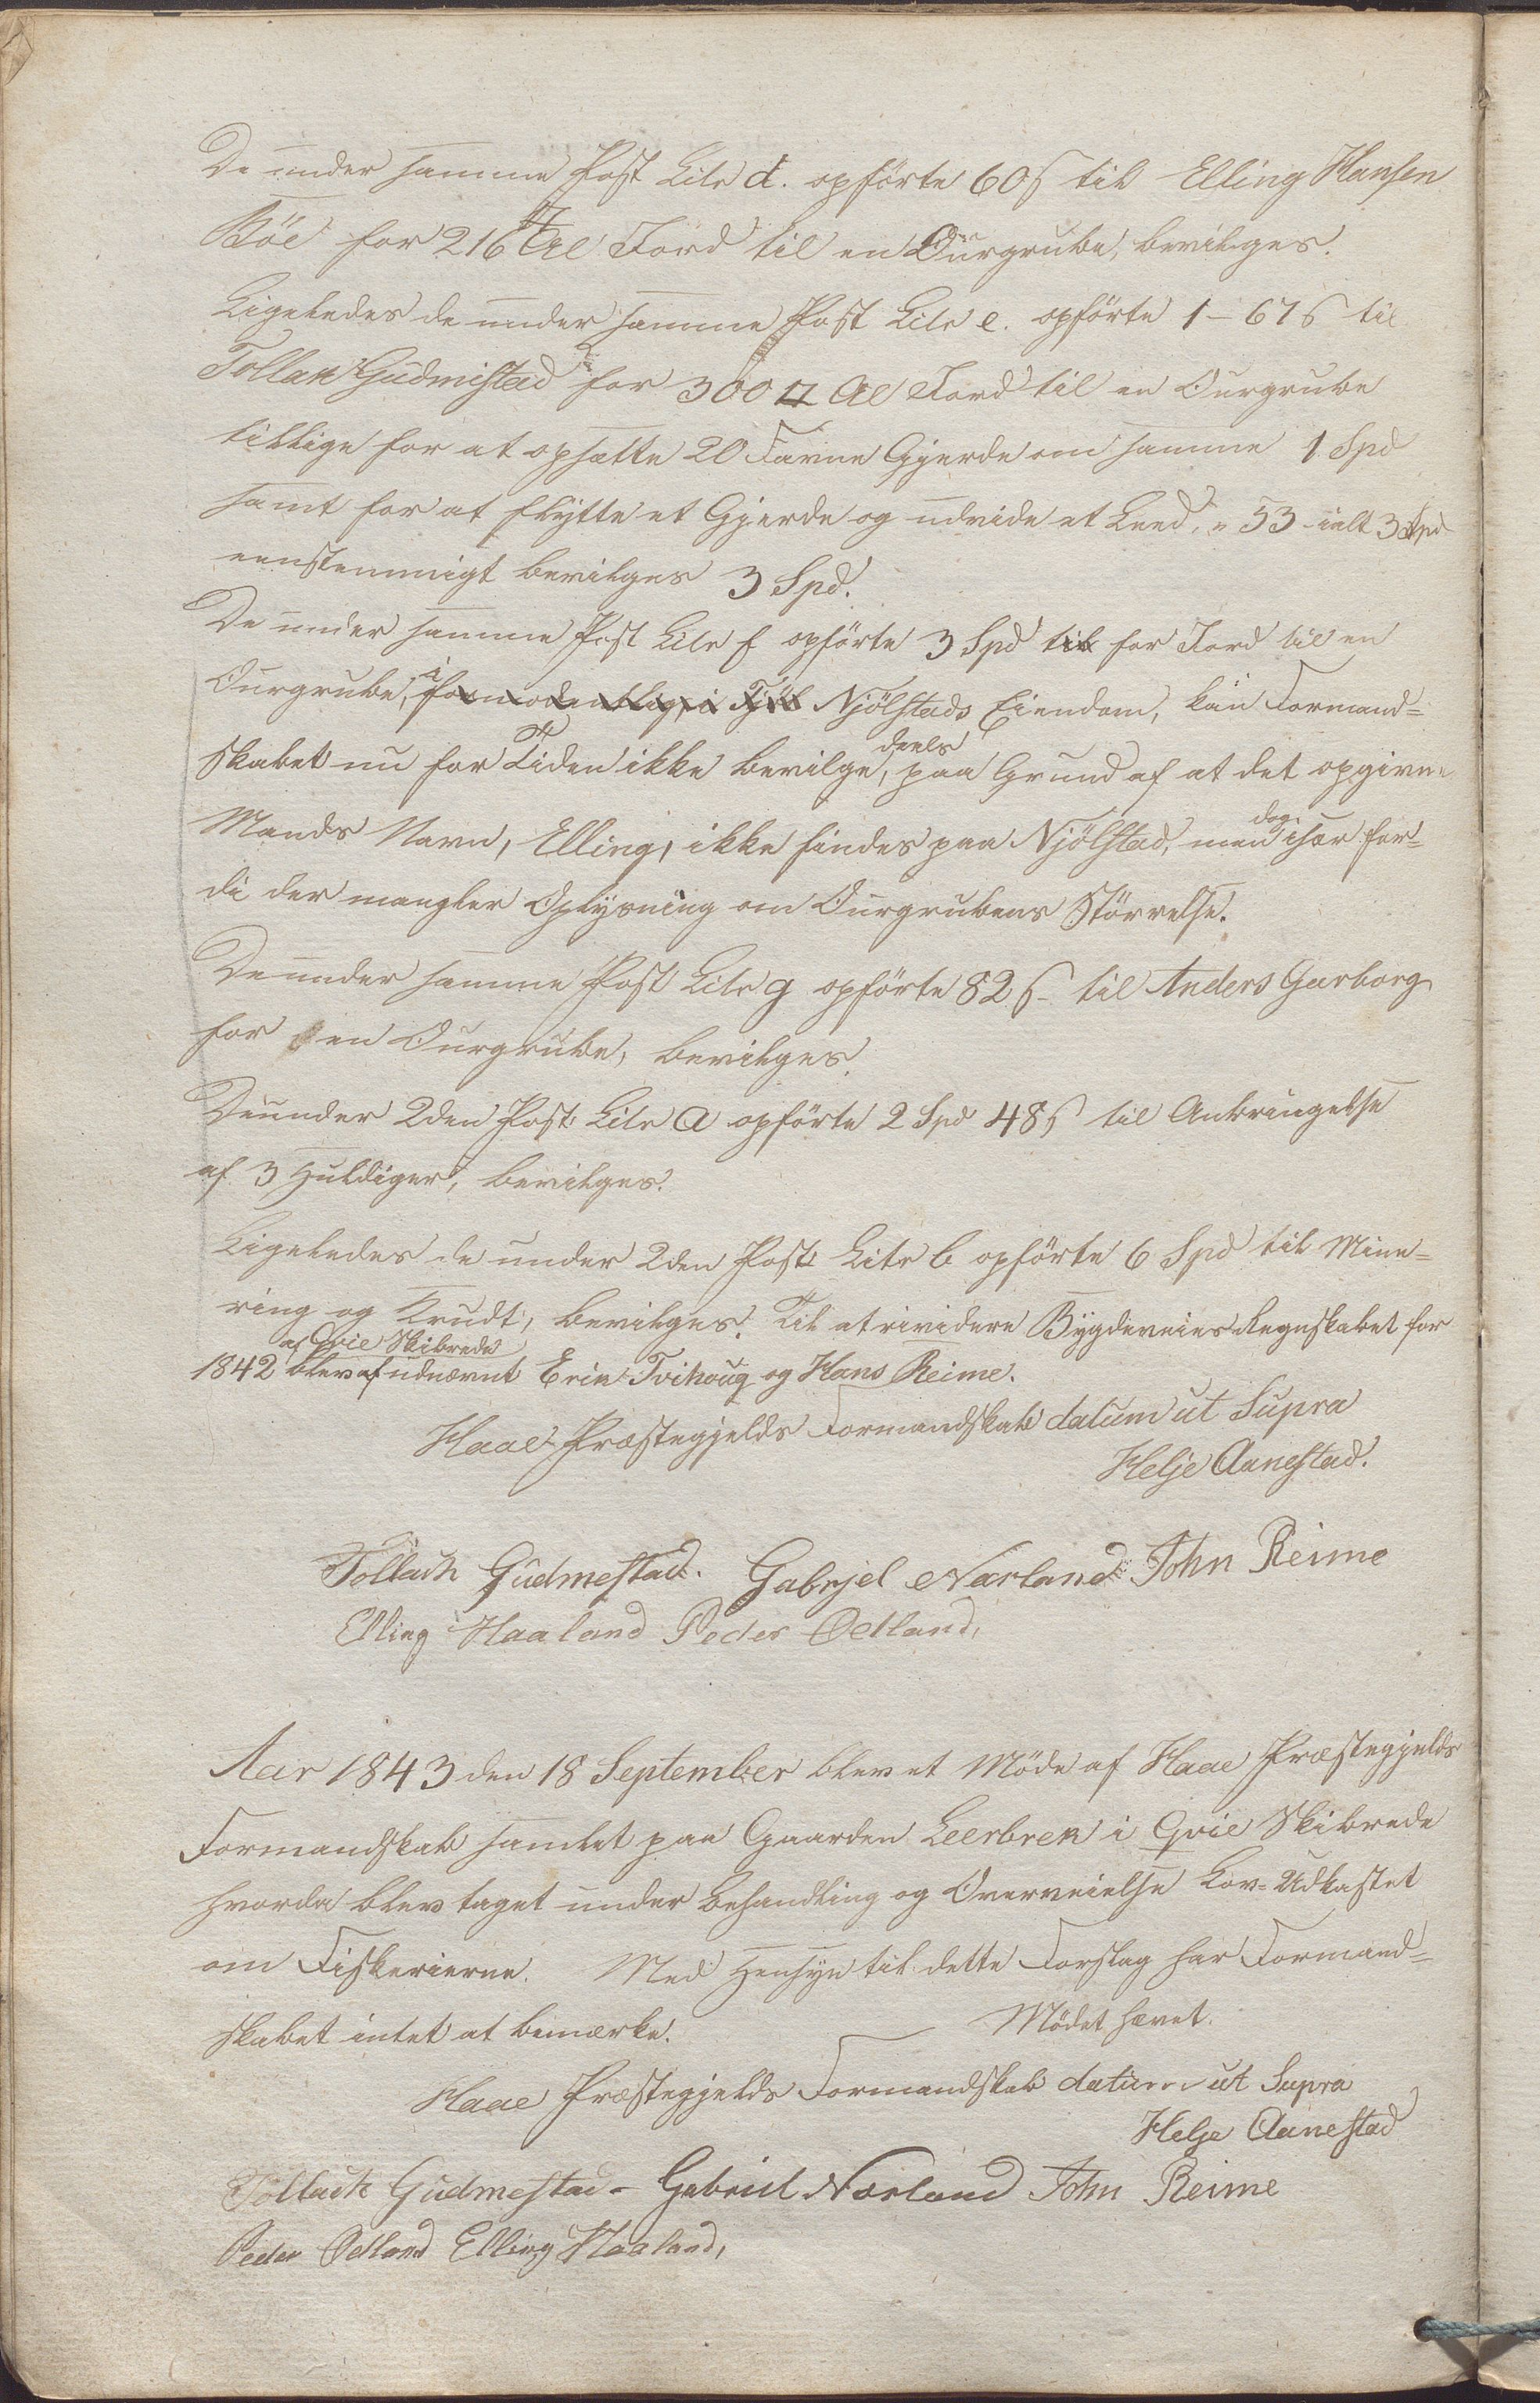 De under samme Post Litr d. opförte 60 s til Elling Hansen
Böe for 216 □ Al Jord til en Öurgrube, bevilges.
Ligeledes de under samme Post Litr e. opförte 1 - 67 s til
Tollak Gudmistad for 300 □ Al Jord til en Ourgrube
tillige for at opsætte 20 Favne Gjerde om samme 1 Spd
samt for at flytte et Gjerde og udvide et Leed, " 53 - ialt 3 Spd
eenstemmigt bevilges 3 Spd.
De under samme Post Litr f opförte 3 Spd til for Jord til en
Ourgrube, i formodentlig i Njölstads Eiendom, kan Formand=
skabet nu for Tiden ikke bevilge, deels paa Grund af at det opgivne
Mands Navn, Elling, ikke findes paa Njölstad, men dog især for=
di der mangler Oplysning om Ourgrubens Störrelse.
De under samme Post Litr g opförte 82 s til Anders Garborg
for en Ourgrube, bevilges.
De under 2den Post: Litr a opförte 2 Spd 48 s til Anbringelse
af 3 Huldiger, bevilges.
Ligeledes de under 2den Post: Litr b opförte 6 Spd til Mine=
ring og Krudt, bevilges. Til at rividere Bygdeveies Regnskabet for
1842 blev af Qvie Skibrede udnævnt Erik Tvihoug og Hans Reime.
Haae Præstegjelds Formandskab datum ut Supra
Helje Aanestad.
Tollach Gudmestad. Gabrjel Nærland John Reime
Elling Haaland Peder Ødland,
Aar 1843 den 18 September blev et Möde af Haae Præstegjelds
Formandskab samlet paa Gaarden Leerbrek i Qvie Skibrede
hvorda blev taget under Behandling og Overveielse Lov-Udkastet
om Fiskerierne. Med Hensyn til dette Forslag har Formand=
skabet intet at bemærke. Mödet hævet.
Haae Præstegjelds Formandskab datum ut Supra
Helje Aanestad
Tollack Gudmestad - Gabriel Nærland John Reime
Peder Ødland Elling Haaland,